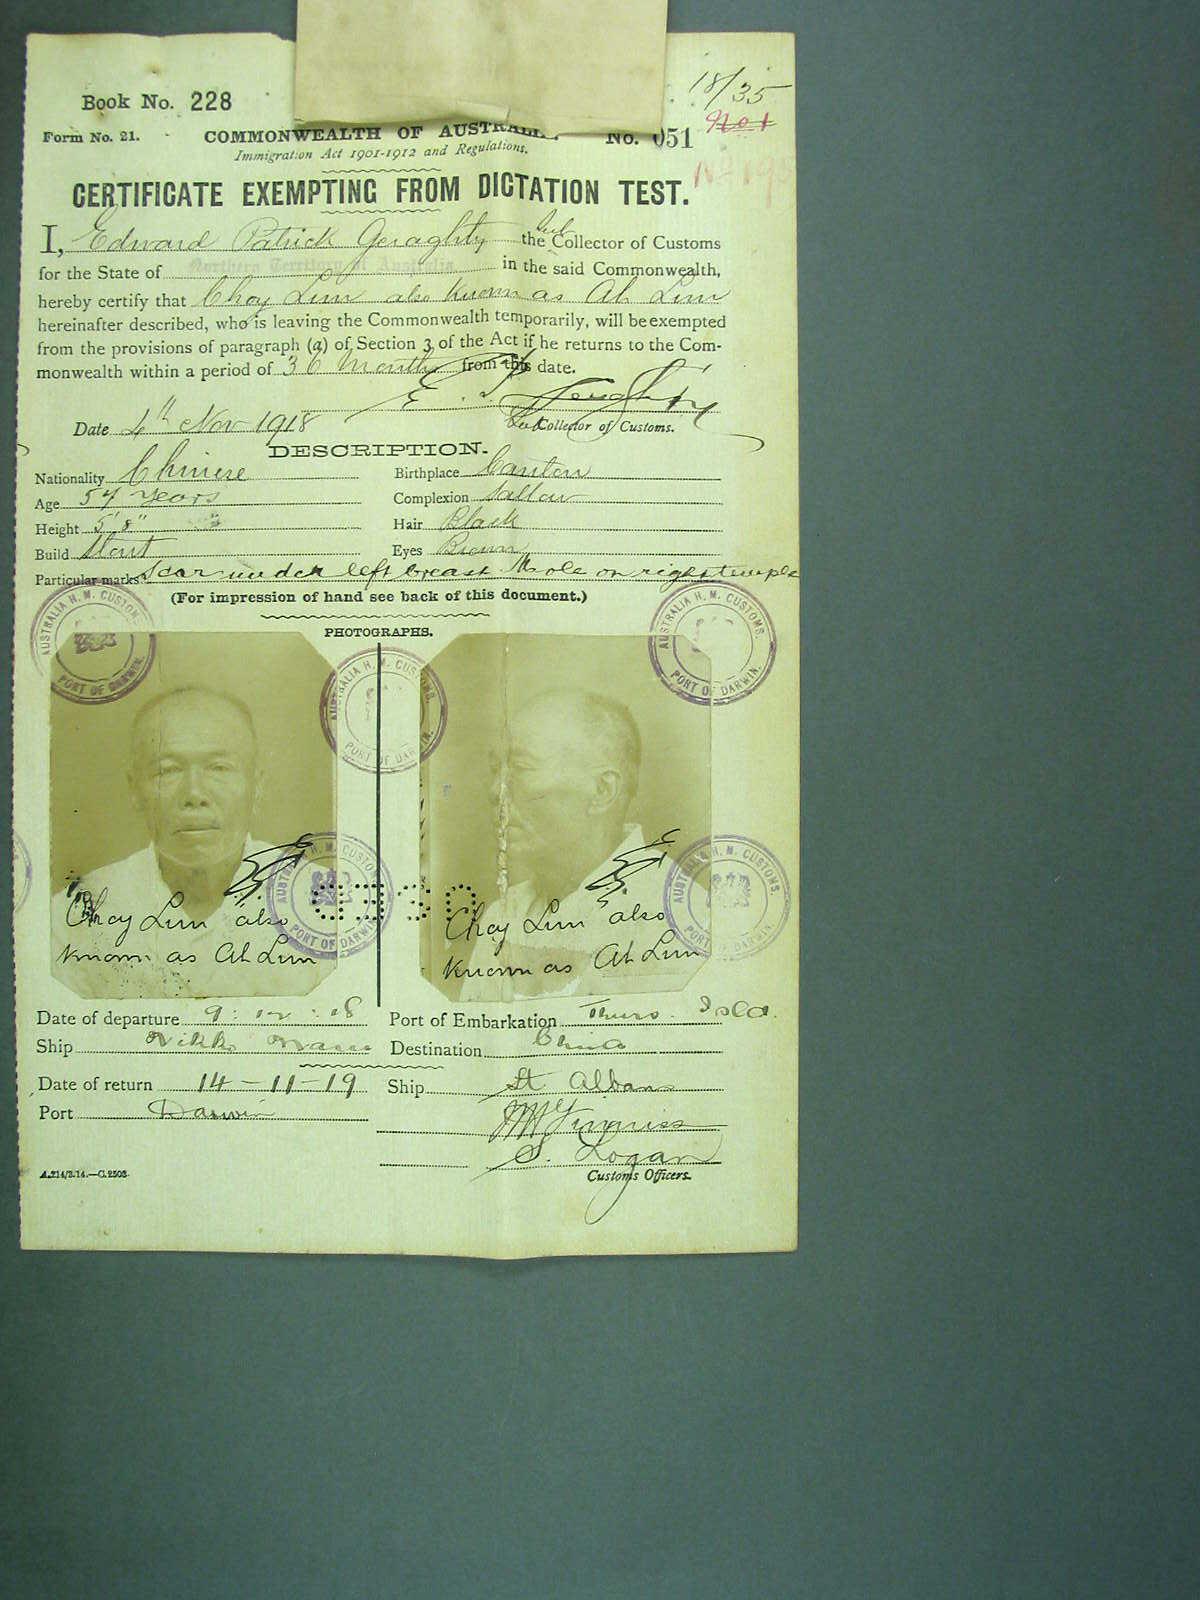 18/35
Book No. 228
No 1
Form No. 21. COMMONWEALTH OF AUSTRALIA. No. 051
Immigration Act 1901-1912 and Regulations.
CERTIFICATE EXEMPTING FROM DICTATION TEST.
I, Edward Patrick Geraghty the Sub Collector of Customs
for the State of Northern Territory of Australia in the said Commonwealth,
hereby certify that Choy Lum also known as Ah Lum
hereinafter described, who is leaving the Commonwealth temporarily, will be exempted
from the provisions of paragraph (a) of Section 3 of the Act if he returns to the Com-
monwealth within a period of 36 Months from this date.
E. P. Geraghty
Date 4th Nov 1918 Sub Collector of Customs.
DESCRIPTION.
Nationality Chinese Birthplace Canton
Age 57 years Complexion Sallow
Height 5' 8" Hair Black
Build Stout Eyes Brown
Particular marks Scar under left breast Mole on right temple
(For impression of hand see back of this document.)
PHOTOGRAPHS.
AUSTRALIA H. M. CUSTOMS. PORT OF DARWIN.
AUSTRALIA H. M. CUSTOMS. PORT OF DARWIN.
AUSTRALIA H. M. CUSTOMS. PORT OF DARWIN.
AUSTRALIA H. M. CUSTOMS. PORT OF DARWIN.
AUSTRALIA H. M. CUSTOMS. PORT OF DARWIN.
Choy Lum also
known as Ah Lum
Choy Lum also
known as Ah Lum
Date of departure 9:12:18 Port of Embarkation Thurs. Isld.
Ship Nikko Maru Destination China
Date of return 14-11-19 Ship St Albans
Port Darwin
S. Logan
Customs Officers.
A.214/3.14.—C.2503.